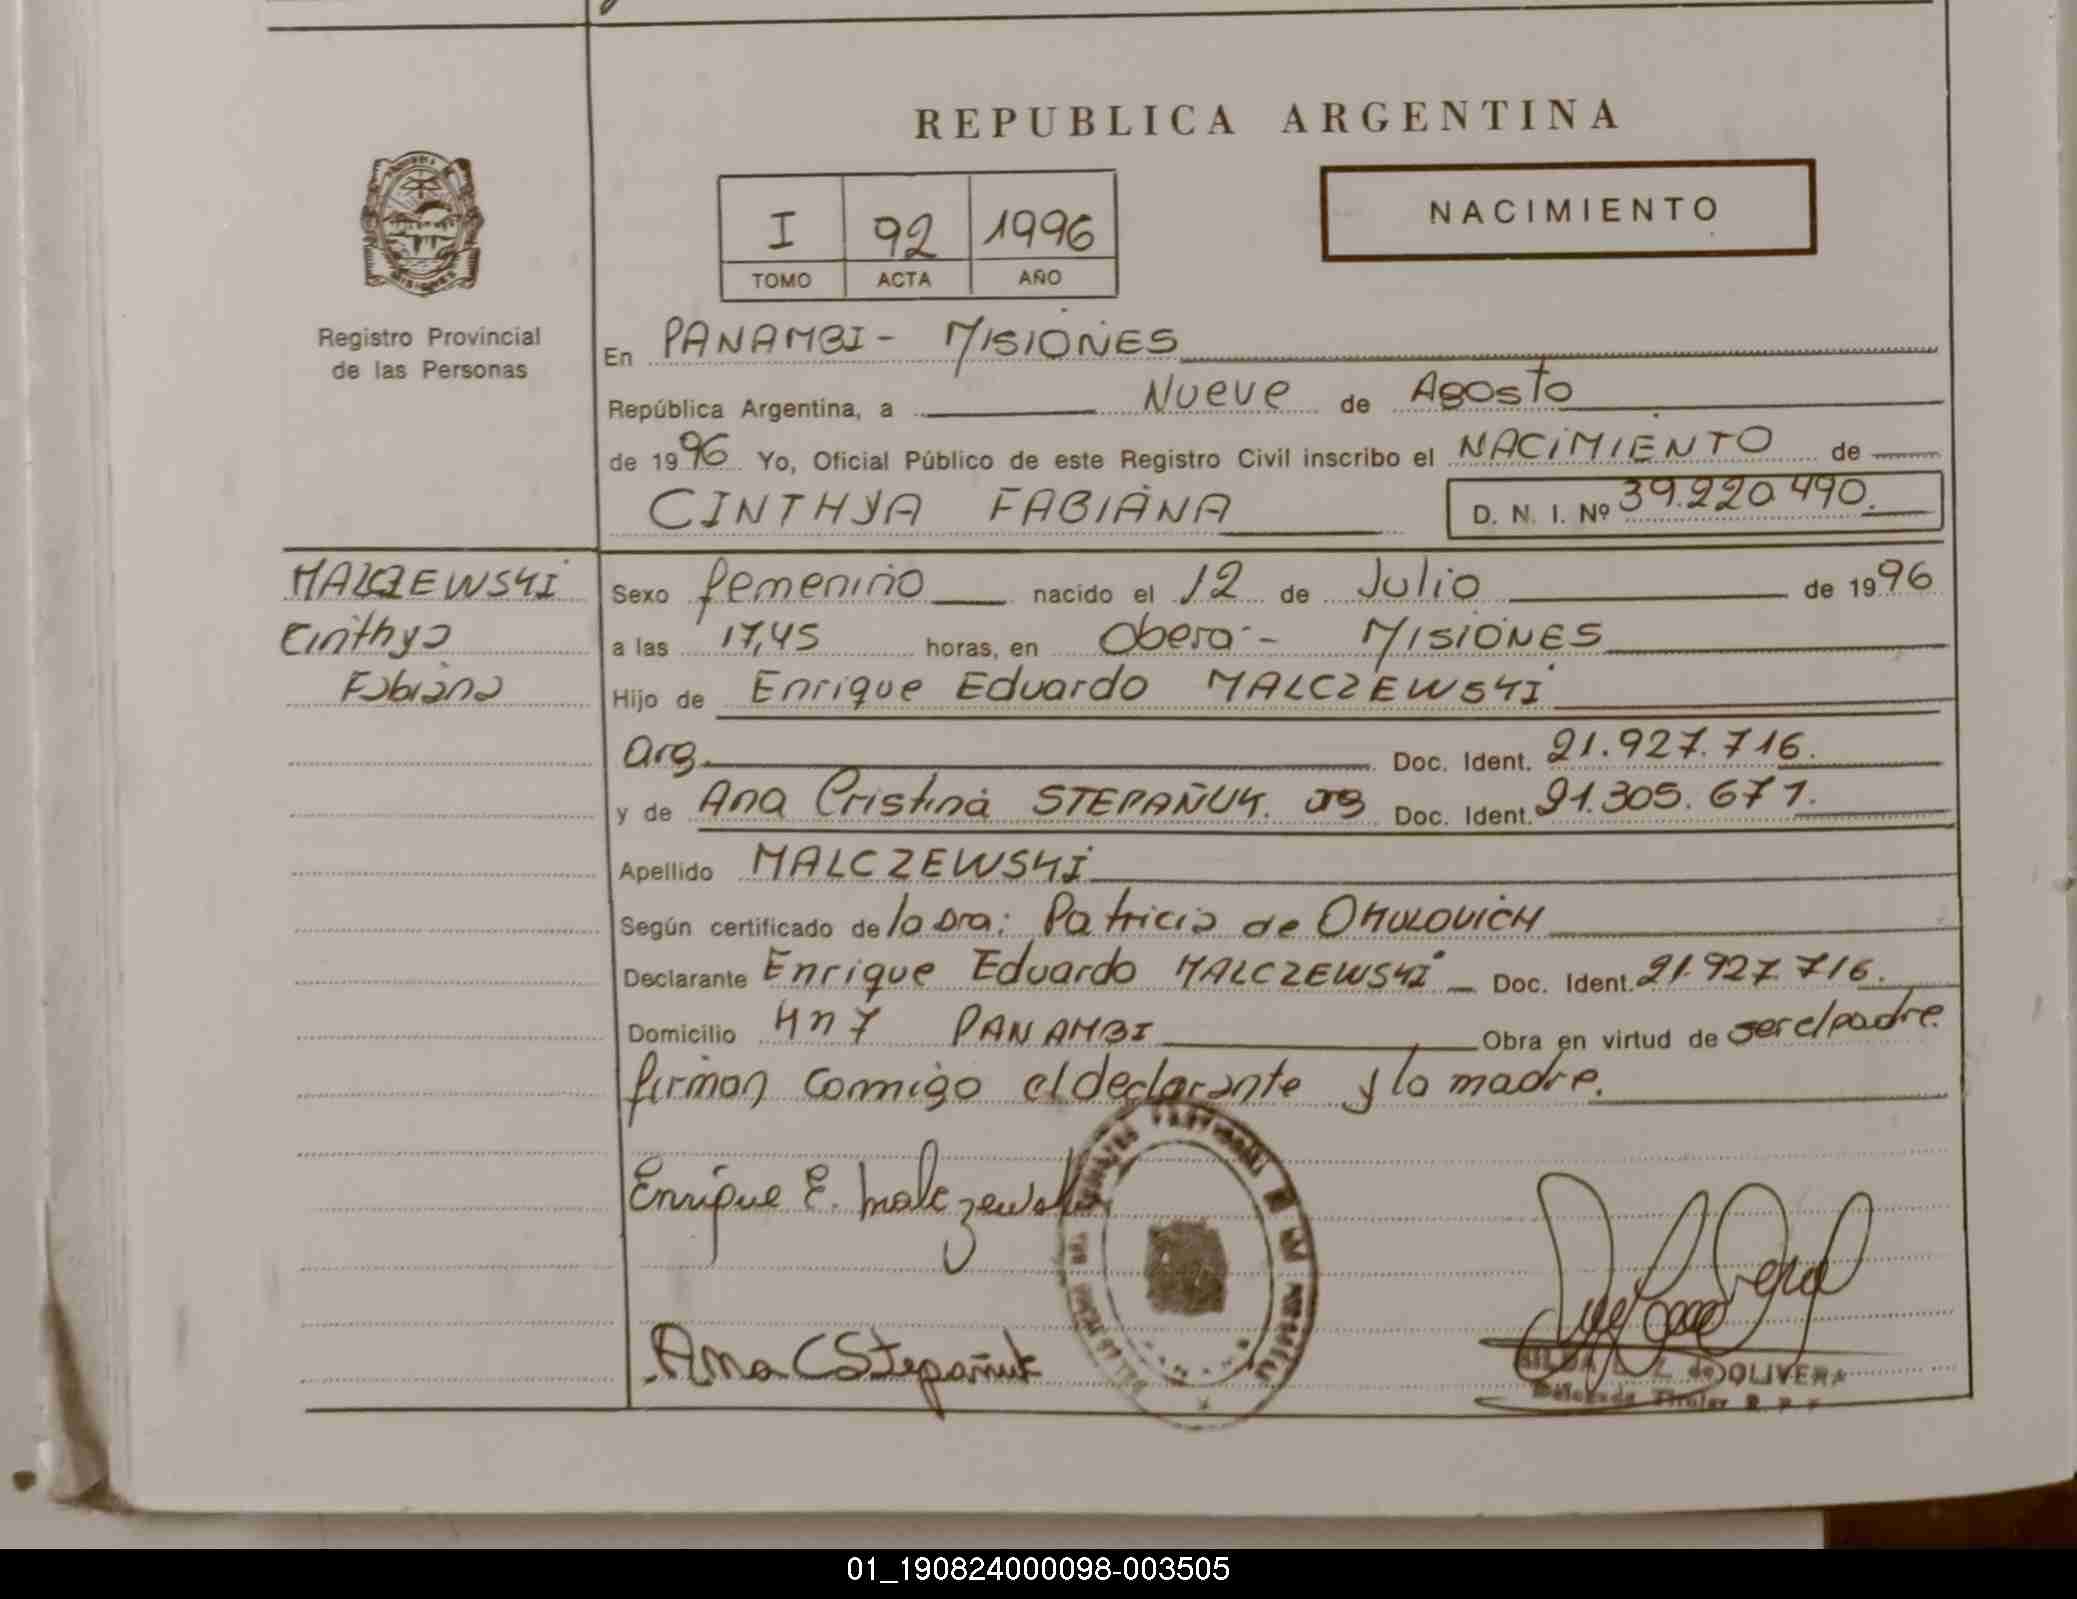 REPUBLICA ARGENTINA
I 92 1996
TOMO ACTA AÑO
NACIMIENTO
Registro Provincial
de las Personas
En PANAMBI - MISIONES
República Argentina, a Nueve de Agosto
de 1996 Yo, Oficial Público de este Registro Civil inscribo el NACIMIENTO de
CINTHYA FABIANA D. N. I. Nº 39.220.490.
MALCZEWSKI
Cinthya
Fabiana
Sexo femenino nacido el 12 de Julio de 1996
a las 17,45 horas, en Obera - MISIONES
Hijo de Enrique Eduardo MALCZEWSKI
Arg. Doc. Ident. 21.927.716.
y de Ana Cristina STEPAÑUK. arg Doc. Ident. 21.305.671.
Apellido MALCZEWSKI
Según certificado de la Dra: Patricia de OKULOVICH
Declarante Enrique Eduardo MALCZEWSKI Doc. Ident. 21.927.716.
Domicilio Kn 7 PANAMBI Obra en virtud de ser el padre.
firman conmigo el declarante y la madre.
Enrique E. Malczewski
Ana C Stepañuk
de OLIVERA
Titular
01_190824000098-003505